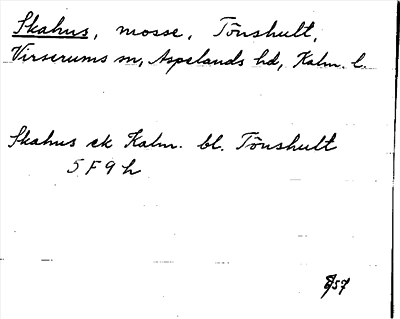 Skahus, mosse, Tönshult,
Virserums sn, Aspelands hd, Kalm. l.
Skahus ek Kalm. bl. Tönshult
5 F 9 h